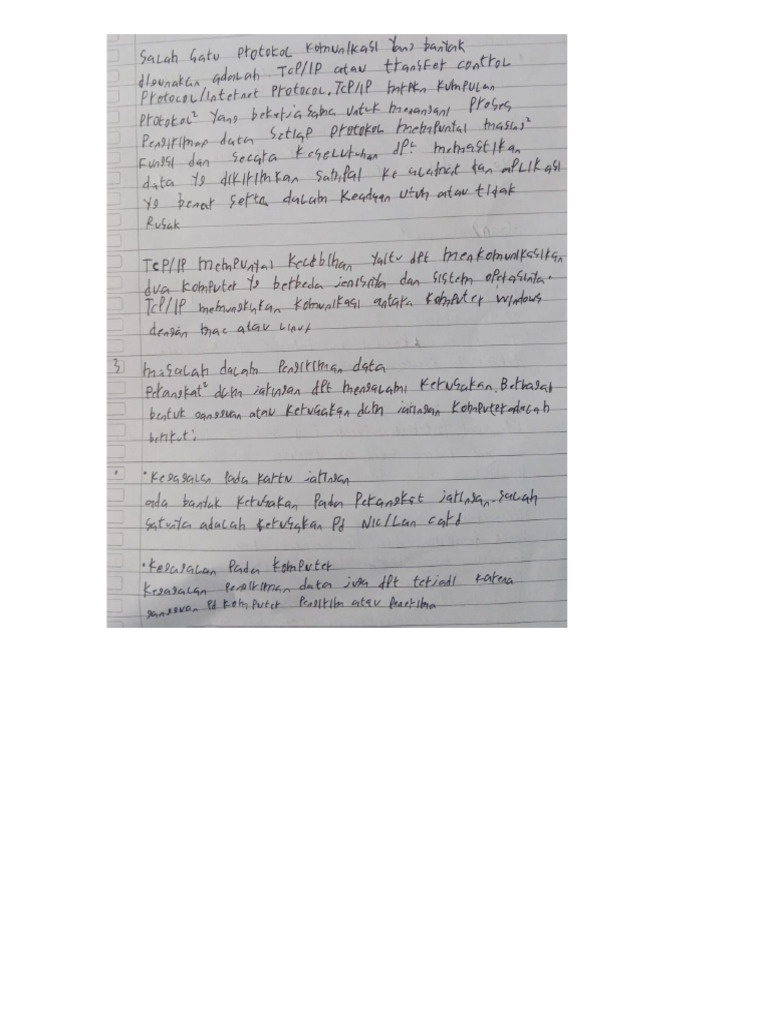 Salah satu protokol komunikasi yang banyak
digunakan adalah TCP/IP atau transfer control
Protocol/Internet Protocol. TCP/IP mrpkn kumpulan
Protokol² yang bekerja sama untuk menangani proses
Pengiriman data setiap protokol mempunyai masing²
Fungsi dan secara keseluruhan dpt memastikan
data yg dikirimkan sampai ke alamat dan aplikasi
yg benar serta dalam keadaan utuh atau tidak
Rusak
TCP/IP mempunyai kelebihan yaitu dpt menkomunikasikan
dua komputer yg berbeda jenisnya dan sistem operasinya.
TCP/IP memungkinkan komunikasi antara komputer windows
dengan mac atau Linux
3 masalah dalam pengiriman data
Perangkat² dlm jaringan dpt mengalami kerusakan. Berbagai
bentuk gangguan atau kerusakan dlm jaringan komputer adalah
berikut:
• kegagalan pada kartu jaringan
ada banyak kerusakan pada perangkat jaringan. salah
satunya adalah kerusakan pd NIC/Lan card
• kegagalan pada komputer
kegagalan pengiriman data juga dpt terjadi karena
gangguan pd komputer pengirim atau penerima